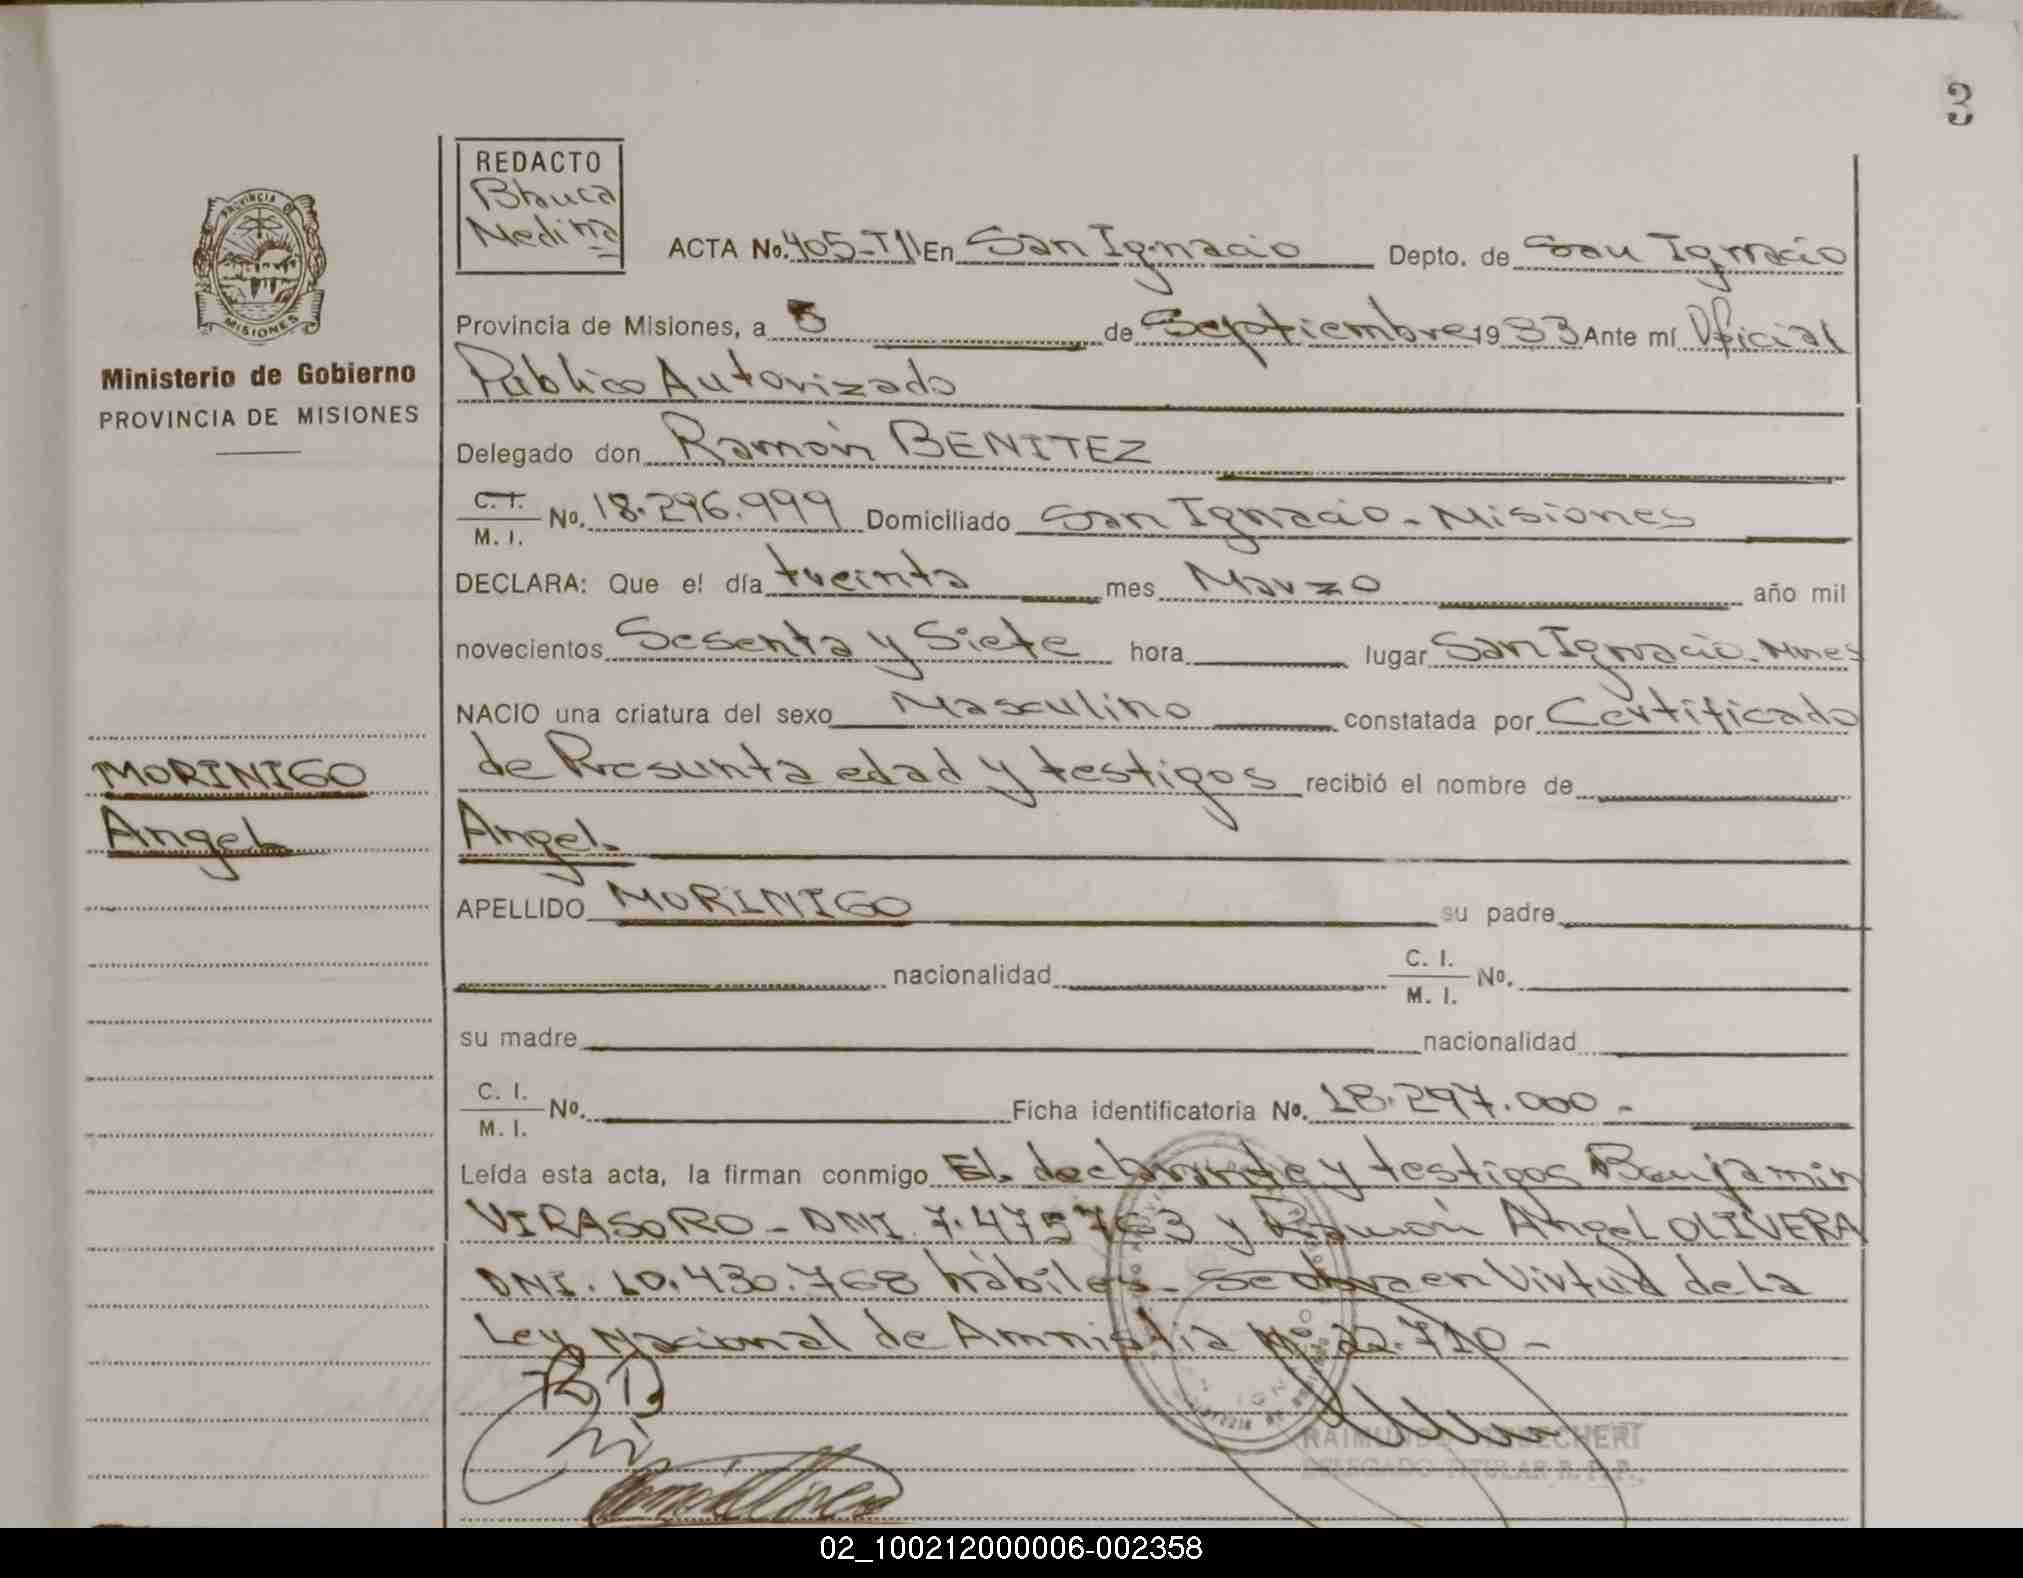 3
REDACTO
Blanca
Medina
PROVINCIA DE
MISIONES
Ministerio de Gobierno
PROVINCIA DE MISIONES
ACTA No. 405-T II En San Ignacio Depto. de San Ignacio
Provincia de Misiones, a de Septiembre 1983 Ante mí Oficial
Público Autorizado
Delegado don Ramón BENITEZ
C. I.
M. I. No. 18.296.999 Domiciliado San Ignacio - Misiones
DECLARA: Que el día treinta mes Marzo año mil
novecientos Sesenta y Siete hora lugar San Ignacio. Mnes
NACIO una criatura del sexo Masculino constatada por Certificado
de Presunta edad y testigos recibió el nombre de
Angel.
MORINIGO
Angel
APELLIDO MORINIGO su padre
nacionalidad C. I.
M. I. No.
su madre nacionalidad
C. I.
M. I. No. Ficha identificatoria No. 18.297.000 -
Leída esta acta, la firman conmigo El declarante y testigos Benjamin
VIRASORO - DNI. 7.475763 y Ramón Angel OLIVERA
DNI. 10.430.768 hábiles - Se labra en Virtud de La
Ley Nacional de Amnistia Nº 22.710 -
DELEGADO TITULAR R. P. P.
02_100212000006-002358